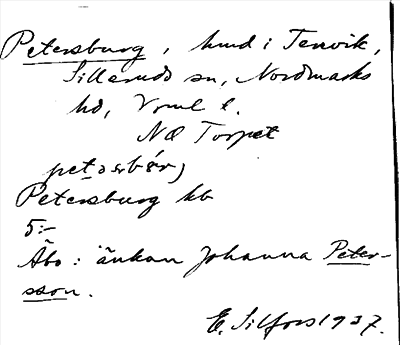 Petersburg, hmd i Tenvik,
Silleruds sn, Nordmarks
hd, Vrml l.
NÆ Torpet
Petersburg kb
5:-
Äbo: änkan Johanna Peter-
sson.
E. Silfors 1937.